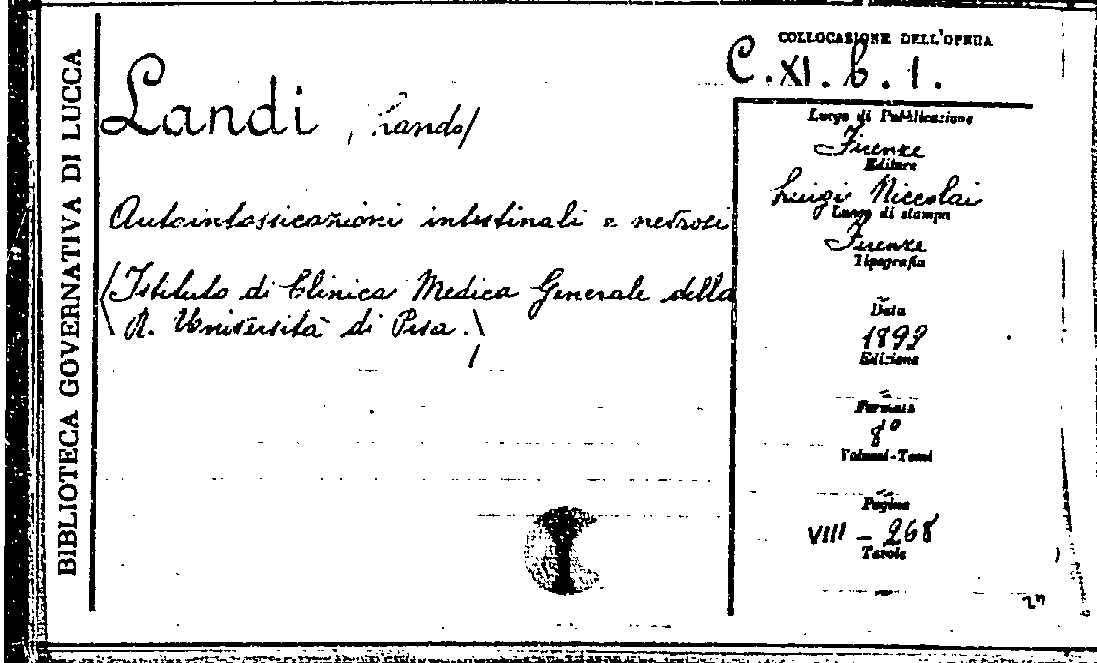 BIBLIOTECA GOVERNATIVA DI LUCCA
COLLOCAZIONE DELL'OPERA
C.XI.b.1.
Landi, Lando/
Autointossicazioni intestinali e nevrosi
(Istituto di Clinica Medica Generale della
R. Università di Pisa.)
Luogo di Pubblicazione
Firenze
Editore
Luigi Niccolai
Luogo di stampa
Firenze
Tipografia
=
Data
1892
Edizione
=
Formato
8°
Volumi-Tomi
=
Pagine
VIII - 268
Tavole